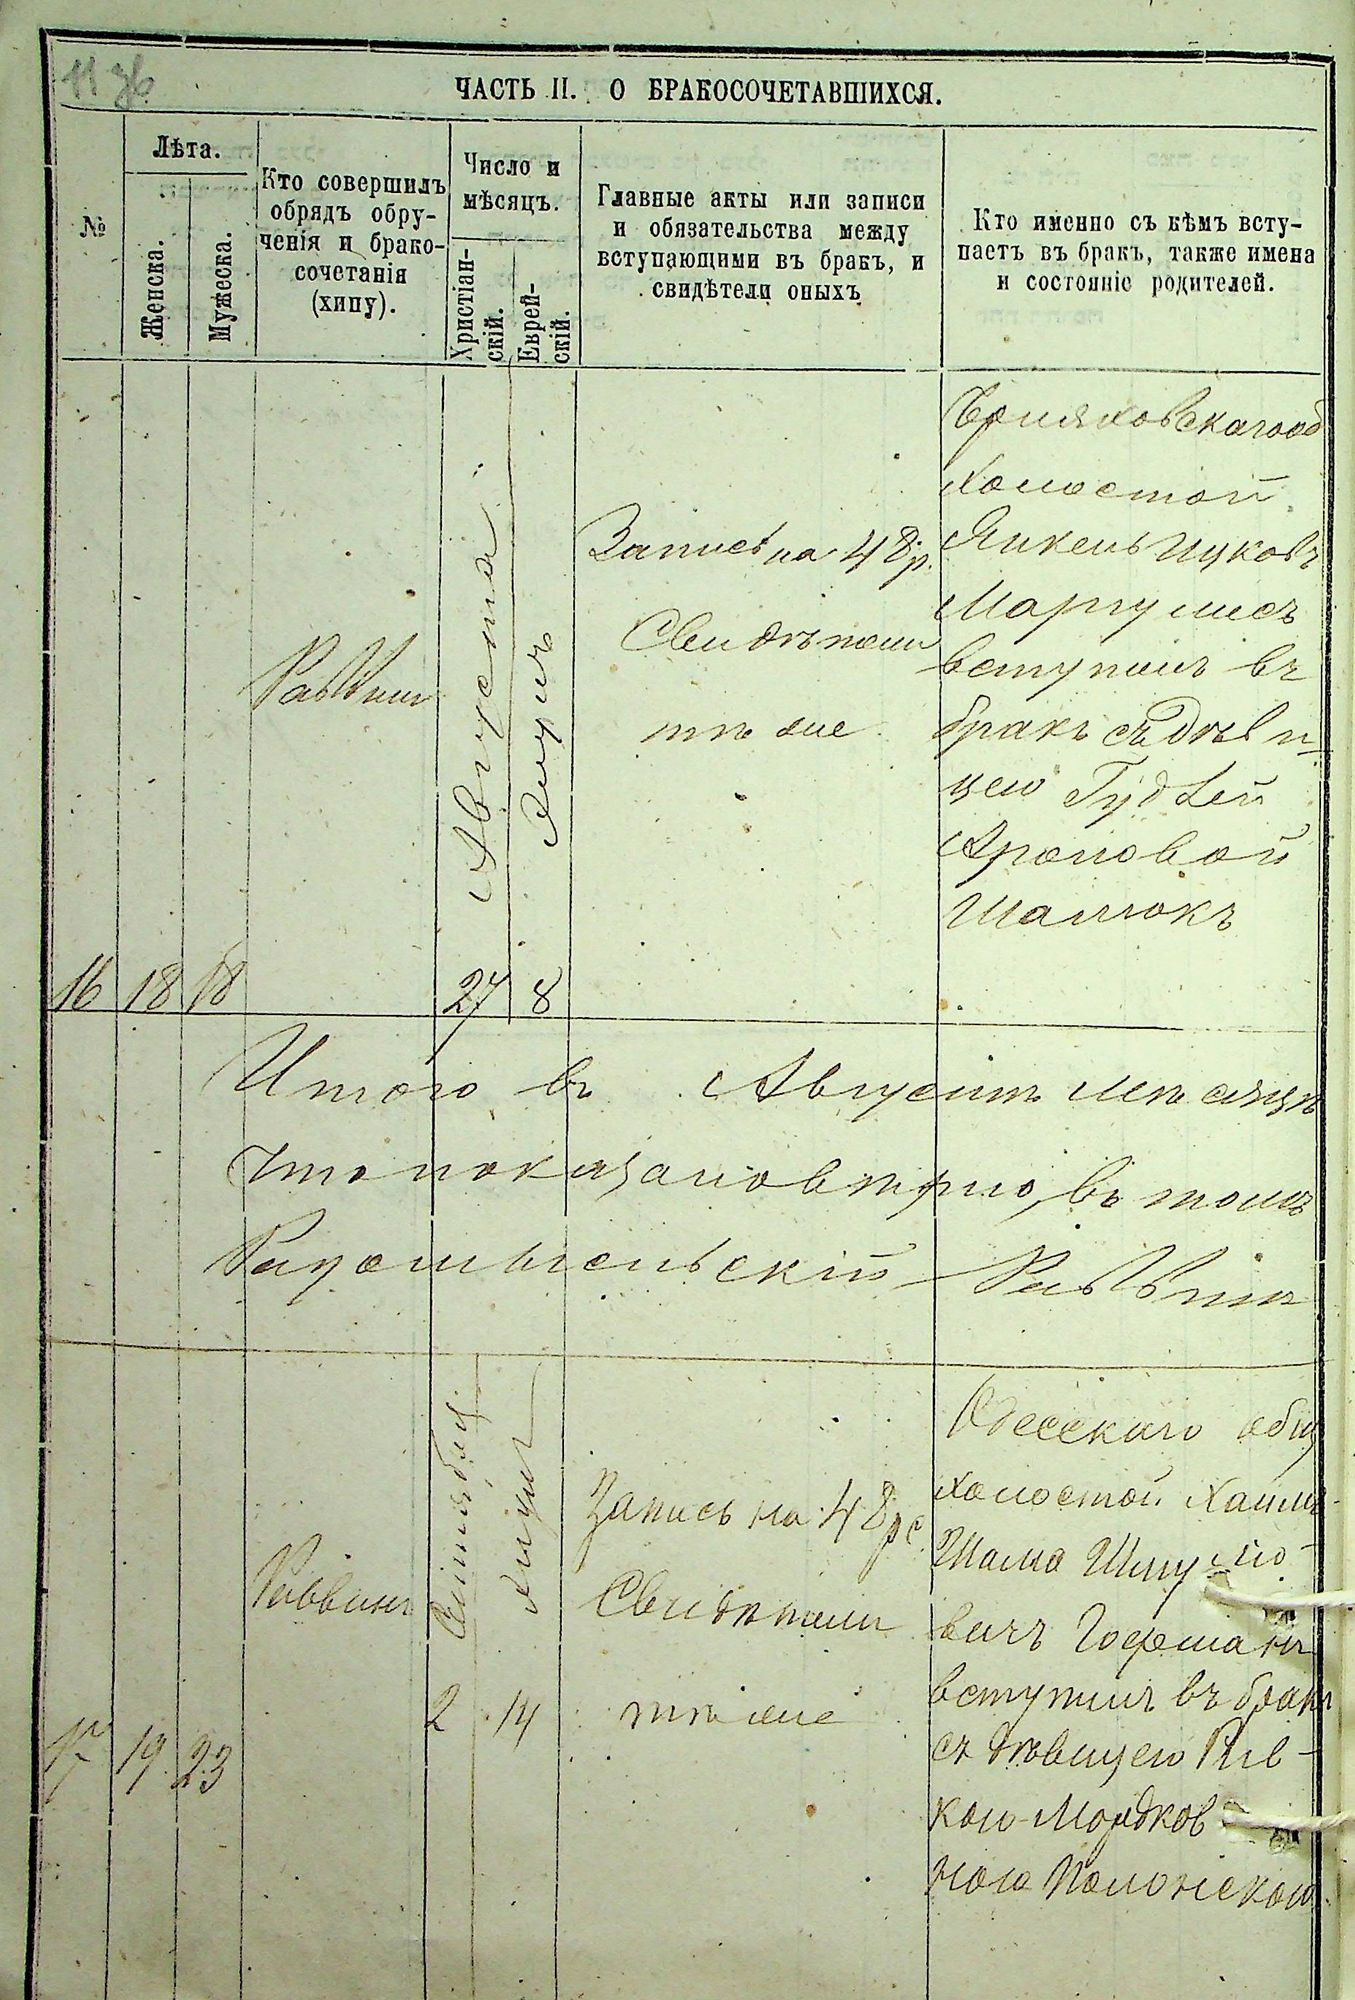 ЧАСТЬ II. О БРАКОСОЧЕТАВШИХСЯ.
№
Лѣта.
Женска.
Мужеска.
Кто совершилъ
обрядъ обру-
ченія и брако-
сочетанія
(хипу).
Число и
мѣсяцъ.
Христіан-
скій.
Еврей-
скій.
Главные акты или записи
и обязательства между
вступающими въ бракъ, и
свидѣтели оныхъ
Кто именно съ кѣмъ всту-
паетъ въ бракъ, также имена
и состояніе родителей.
16
18
18
Раввинъ
Августа
27
Элулъ
8
Запись на 48 р.
Свидѣтели
тѣ же
Черняховскаго об
холостой
Янкель Ицковъ
Маргулисъ
вступилъ въ
бракъ съ дѣви-
цею Гудлей
Ароновой
Шапюкъ
Итого въ Августѣ мѣсяцѣ
что показано вѣрно, въ томъ
Радомысльскій Раввинъ
17
19
23
Раввинъ
Сентября
2
Элулъ
14
Запись на 48 р с
Свидѣтели
тѣ же
Одесскаго общ
холостой Хаимъ-
Шама Шмуло-
вичъ Гофманъ
вступилъ въ бракъ
съ дѣвицею Рив-
кою Мордков-
ною Полонскою